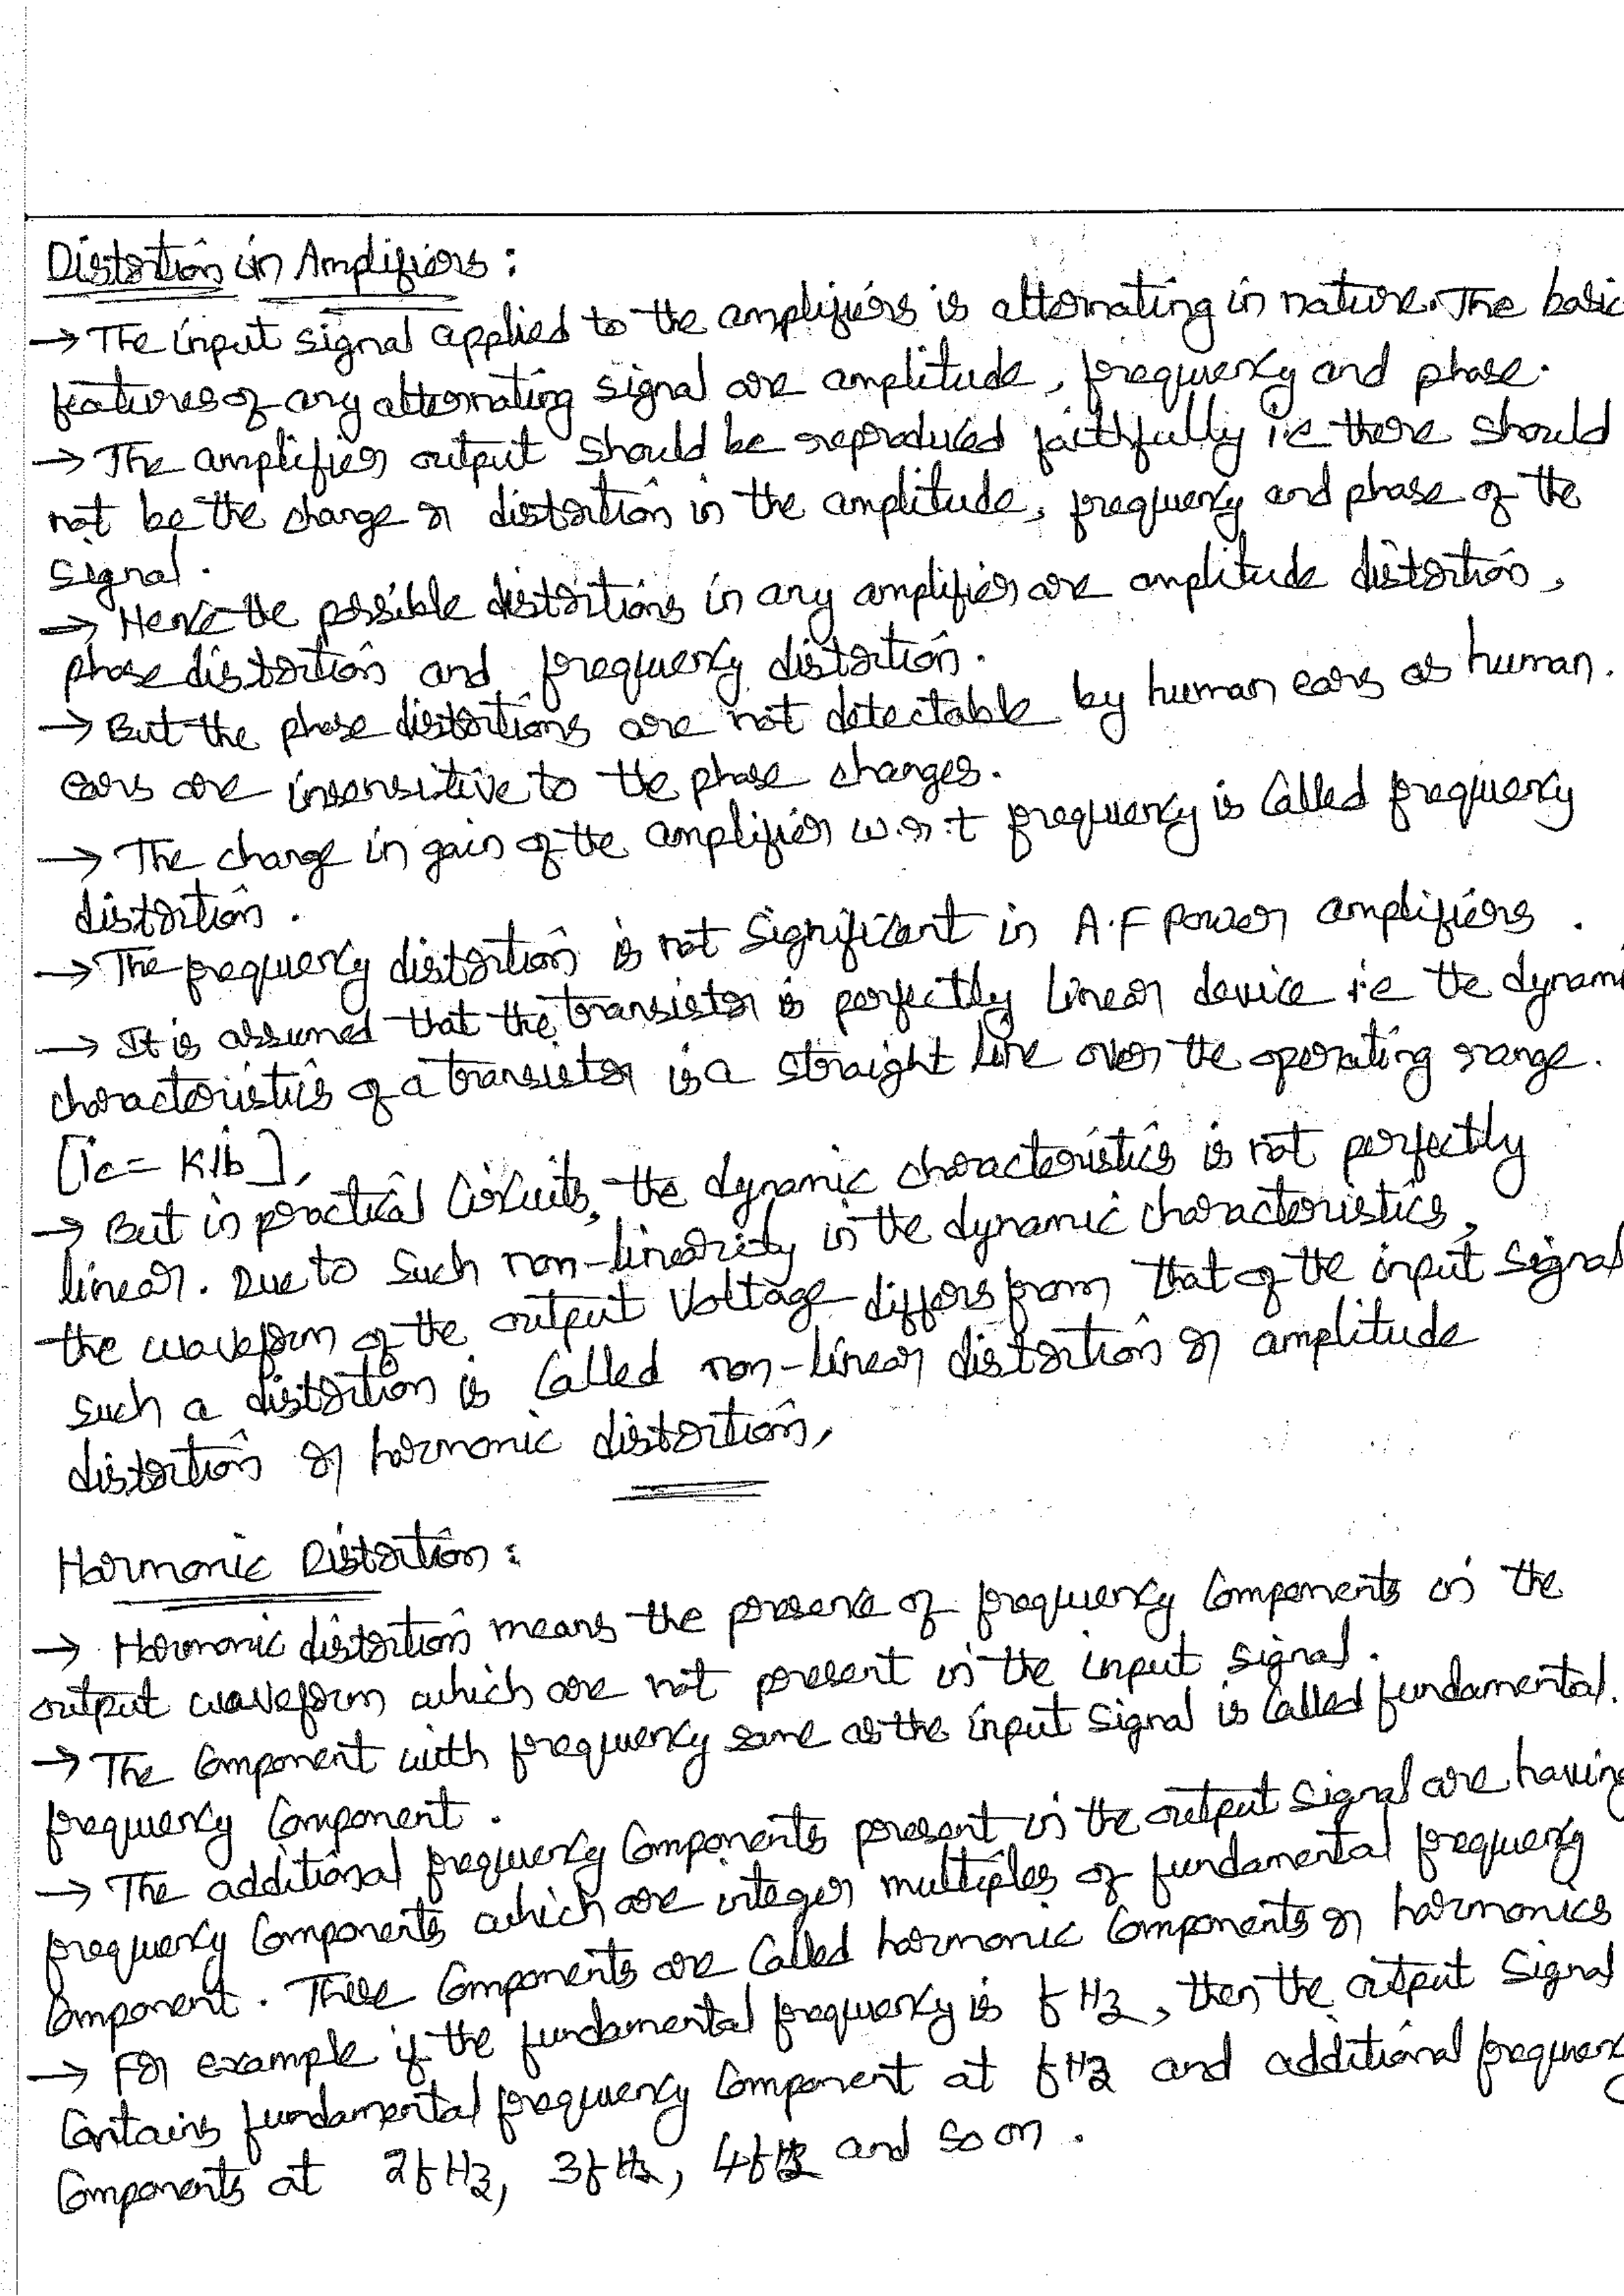 Distortion in Amplifiers :
→ The input signal applied to the amplifiers is alternating in nature. The basic
features of any alternating signal are amplitude, frequency and phase.
→ The amplifier output should be reproduced faithfully i.e there should
not be the change or distortion in the amplitude, frequency and phase of the
signal.
→ Hence the possible distortions in any amplifier are amplitude distortion,
phase distortion and frequency distortion.
→ But the phase distortions are not detectable by human ears as human.
ears are insensitive to the phase changes.
→ The change in gain of the amplifier w.r.t frequency is called frequency
distortion.
→ The frequency distortion is not significant in A.F power amplifiers.
→ It is assumed that the transistor is perfectly linear device i.e the dynami
characteristics of a transistor is a straight line over the operating range.
[ic = Kib],
→ But in practical circuits, the dynamic characteristics is not perfectly
linear. Due to such non-linearity in the dynamic characteristics,
the waveform of the output voltage differs from that of the input signal
such a distortion is called non-linear distortion or amplitude
distortion or harmonic distortion,
Harmonic Distortion :
→ Harmonic distortion means the presence of frequency components in the
output waveform which are not present in the input signal.
→ The component with frequency same as the input signal is called fundamental.
frequency component.
→ The additional frequency components present in the output signal are having
frequency components which are integer multiples of fundamental frequency
component. These components are called harmonic components or harmonics
→ For example if the fundamental frequency is f Hz, then the output signal
contains fundamental frequency component at f Hz and additional frequency
components at 2f Hz, 3f Hz, 4f Hz and so on.